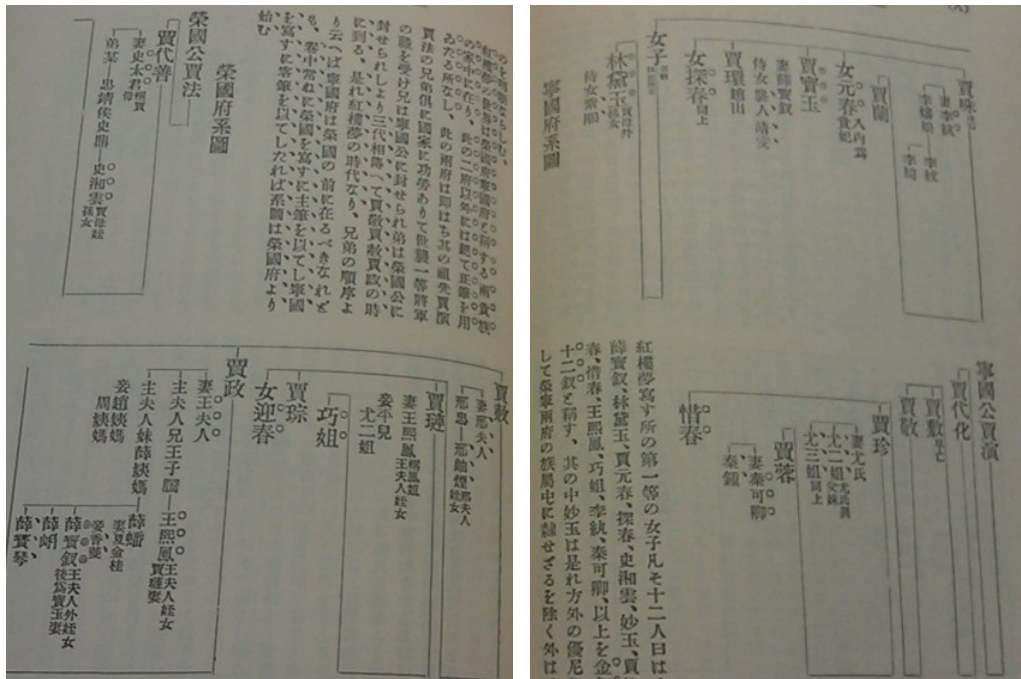 の家中に在り、此の二府以外には絶て正筆を用
ゐたる所なし、此の兩府は即はち其の祖先賈演
賈法の兄弟倶に國家に功勞ありて世襲一等將軍
の職を受け兄は寧國公に封せられ弟は榮國公に
封せられしより三代相傳へて賈敬賈赦賈政の時
に到る、是れ紅樓夢の時代なり、兄弟の順序よ
り云へば寧國府は榮國の前に在るべきなれど
も、卷中常ねに榮國を寫すに主筆を以てし寧國
を寫すに客筆を以てしたれば系圖は榮國府より
始む
榮國府系圖
榮國公賈法
賈代善
妻史太君稱賈母
弟某
忠靖侯史鼎
史湘雲賈母姪孫女
賈赦
妻邢夫人
邢忠
邢岫烟邢夫人姪女
賈璉
妻王熙鳳稱鳳姐王夫人姪女
妾平兒
尤二姐
巧姐
賈琮
女迎春
賈政
妻王夫人
主夫人兄王子騰
王熙鳳王夫人姪女賈璉妻
主夫人妹薛姨媽
妾趙姨媽
周姨媽
薛蟠
妻夏金桂
妾香菱
薛寶釵王夫人外姪女後爲寶玉妻
薛蝌
薛寶琴
賈珠
妻李紈
李嬸娘
李紋
李綺
賈蘭
女元春入内爲貴妃
賈寶玉
妻薛寶釵
侍女襲人晴雯
賈環趙出
女探春同上
女子
林黛玉賈母外孫女
侍女紫鵑
寧國府系圖
寧國公賈演
賈代化
賈敷早亡
賈敬
賈珍
妻尤氏
尤二姐尤氏異父妹
尤三姐同上
賈蓉
妻秦可卿
秦鍾
惜春
紅樓夢寫す所の第一等の女子凡そ十二人曰は
薛寶釵、林黛玉、賈元春、探春、史湘雲、妙玉、賈
春、惜春、王熙鳳、巧姐、李紈、秦可卿、以上を金
十二釵と稱す、其の中妙玉は是れ方外の優尼
して榮寧兩府の族屬中に隷せざるを除く外は